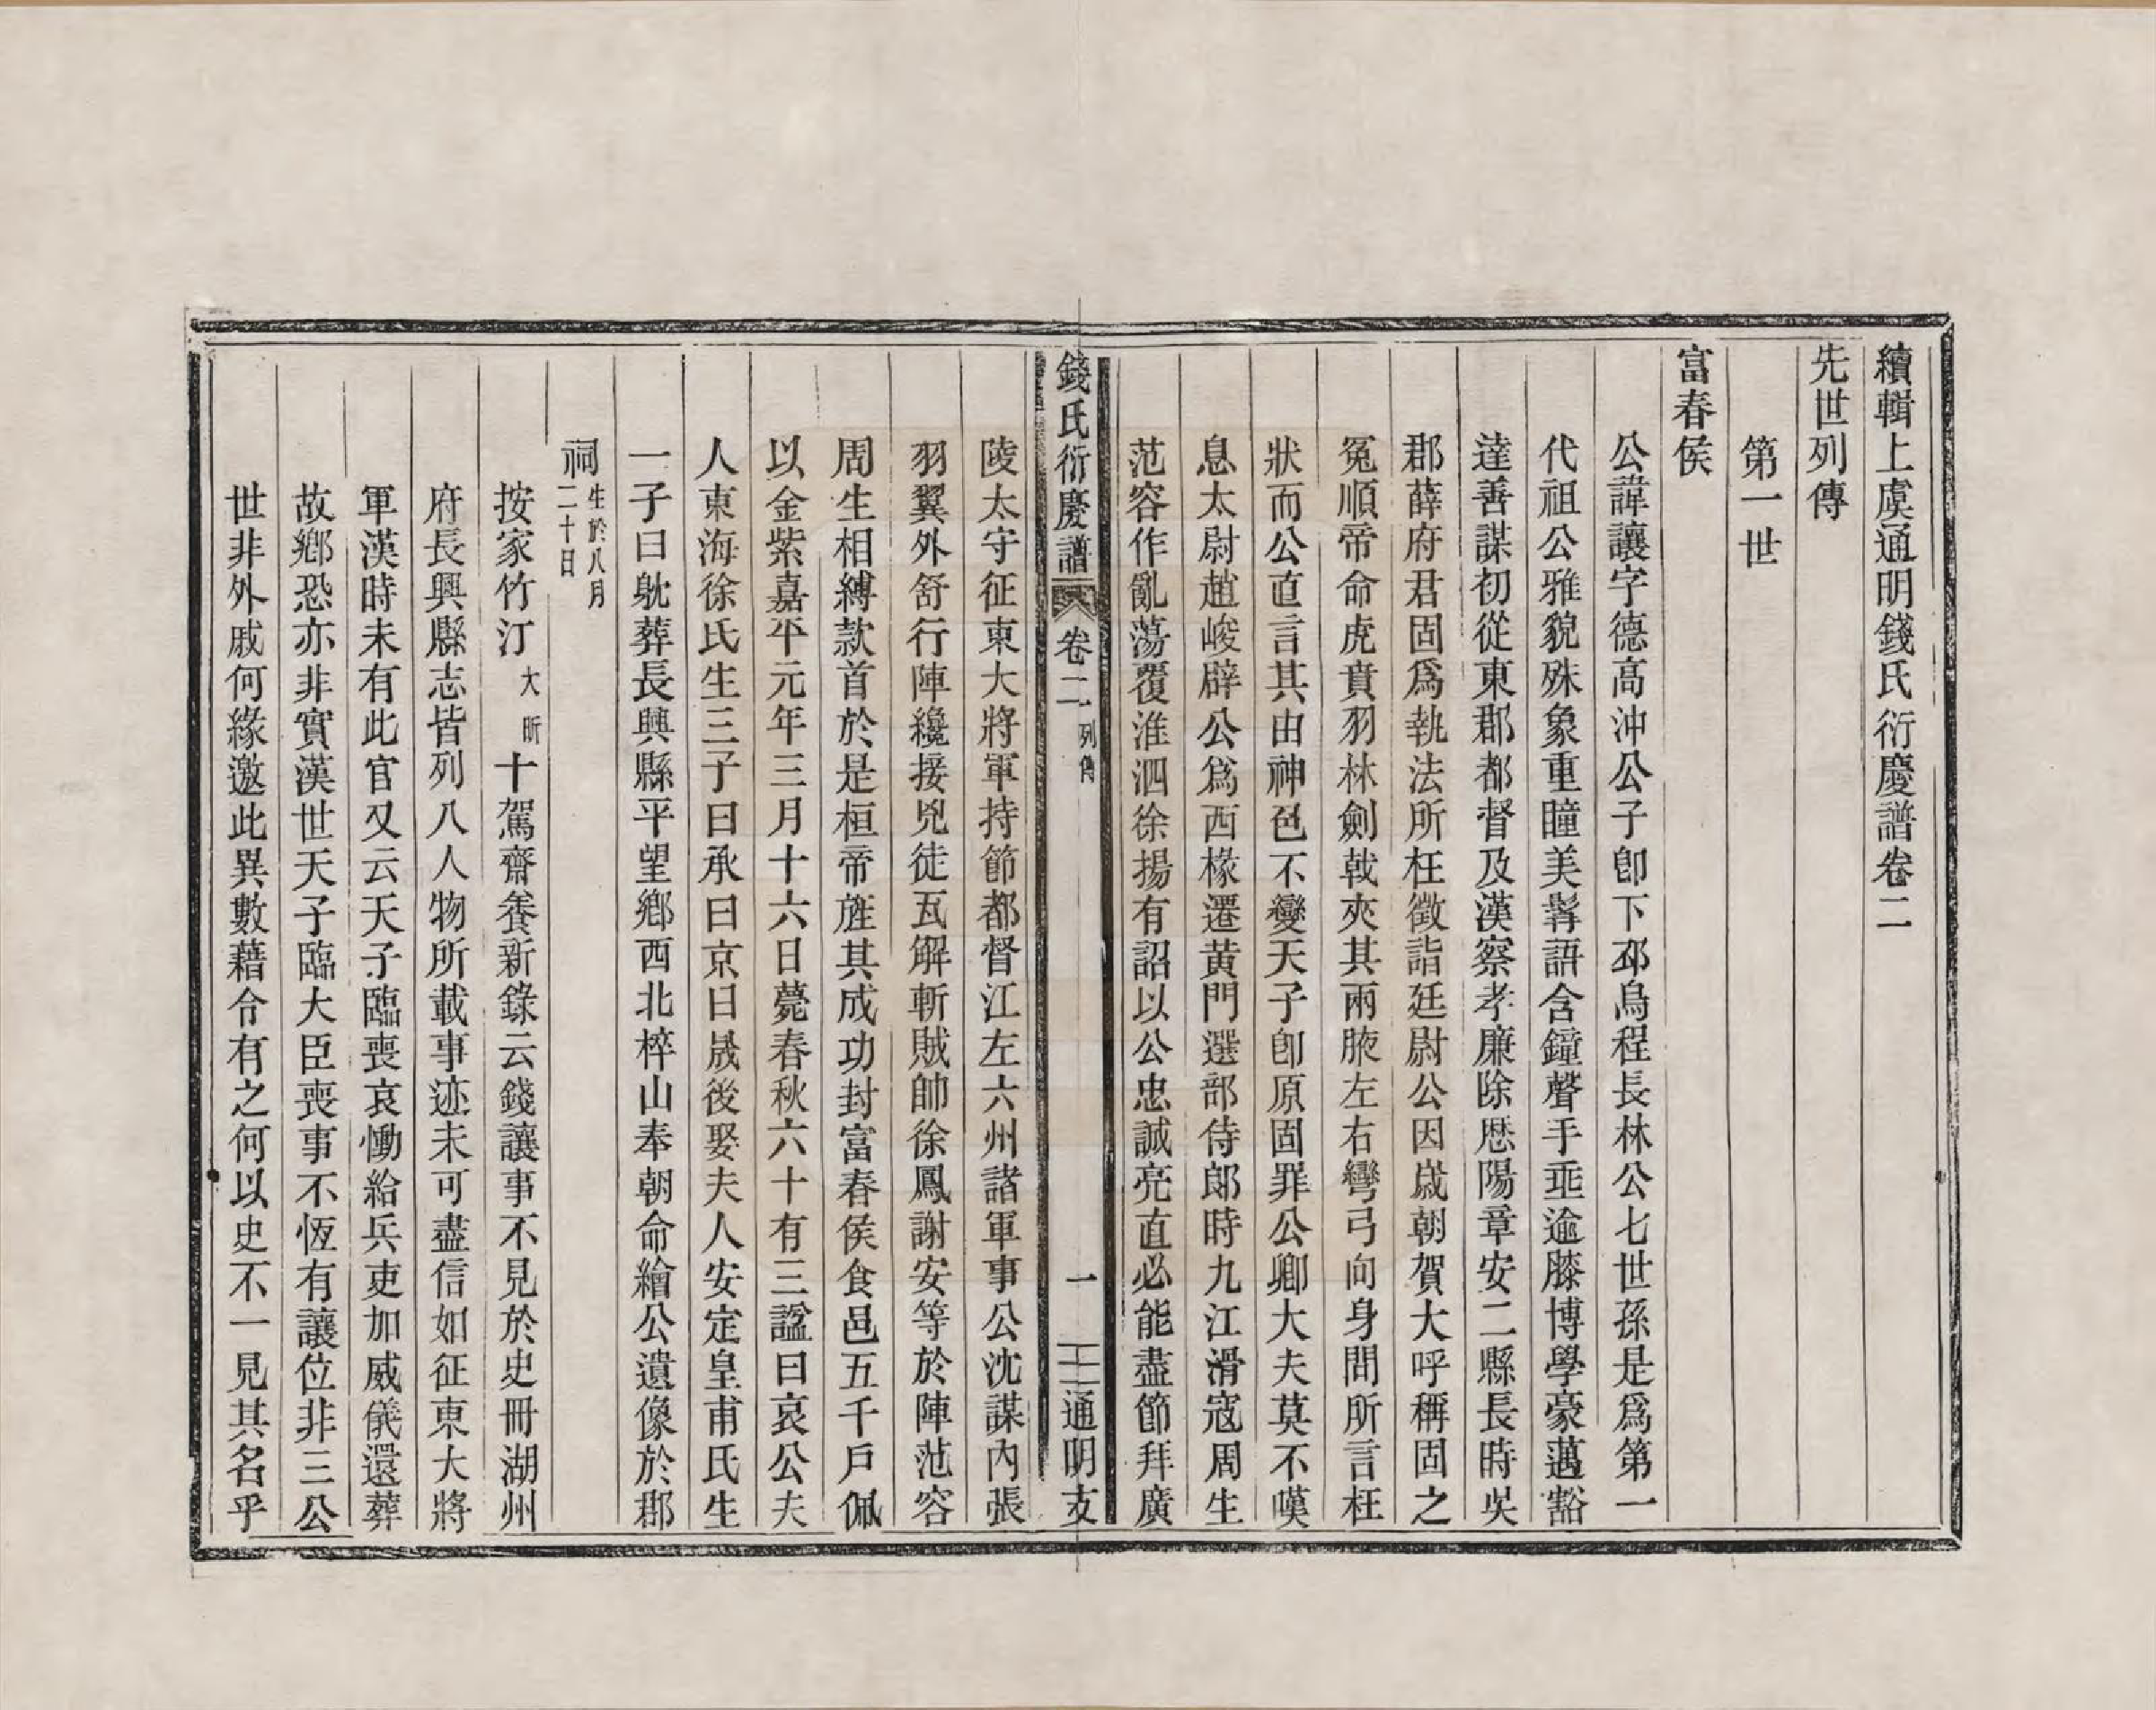 續輯上虞通明錢氏衍慶譜卷二
先世列傳
第一世
富春侯
公諱讓字德高沖公子卽下邳烏程長林公七世孫是爲第一
代祖公雅貌殊象重瞳美髯語含鐘聲手垂逾膝博學豪邁豁
達善謀初從東郡都督及漢察孝廉除厯陽章安二縣長時吳
郡薛府君固爲執法所枉徵詣廷尉公因歲朝賀大呼稱固之
冤順帝命虎賁羽林劍戟夾其兩腋左右彎弓向身問所言枉
狀而公直言其由神色不變天子卽原固罪公卿大夫莫不嘆
息太尉趙峻辟公爲西椽遷黃門選部侍郞時九江滑寇周生
范容作亂蕩覆淮泗徐揚有詔以公忠誠亮直必能盡節拜廣
錢氏衍慶譜 卷二 列傳 一 通明支
陵太守征東大將軍持節都督江左六州諸軍事公沈謀內張
羽翼外舒行陣纔接兇徒瓦解斬賊帥徐鳳謝安等於陣范容
周生相縛款首於是桓帝旌其成功封富春侯食邑五千戶佩
以金紫嘉平元年三月十六日薨春秋六十有三諡曰哀公夫
人東海徐氏生三子曰承曰京曰晟後娶夫人安定皇甫氏生
一子曰躭葬長興縣平望鄉西北椊山奉朝命繪公遺像於郡
祠生於八月二十日
按家竹汀大昕十駕齋養新錄云錢讓事不見於史冊湖州
府長興縣志皆列八人物所載事迹未可盡信如征東大將
軍漢時未有此官又云天子臨喪哀慟給兵吏加威儀還葬
故鄉恐亦非實漢世天子臨大臣喪事不恆有讓位非三公
世非外戚何緣邀此異數藉令有之何以史不一見其名乎